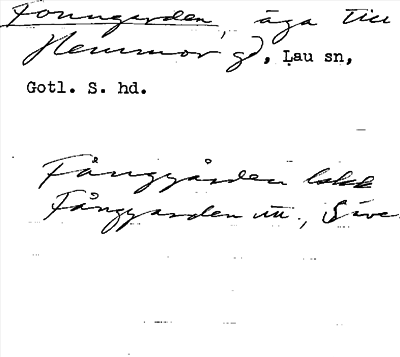 Fonngarden, äga till
Hemmor gd, Lau sn,
Gotl. S. hd.
Fånggården
Fånggarden utt., Säve